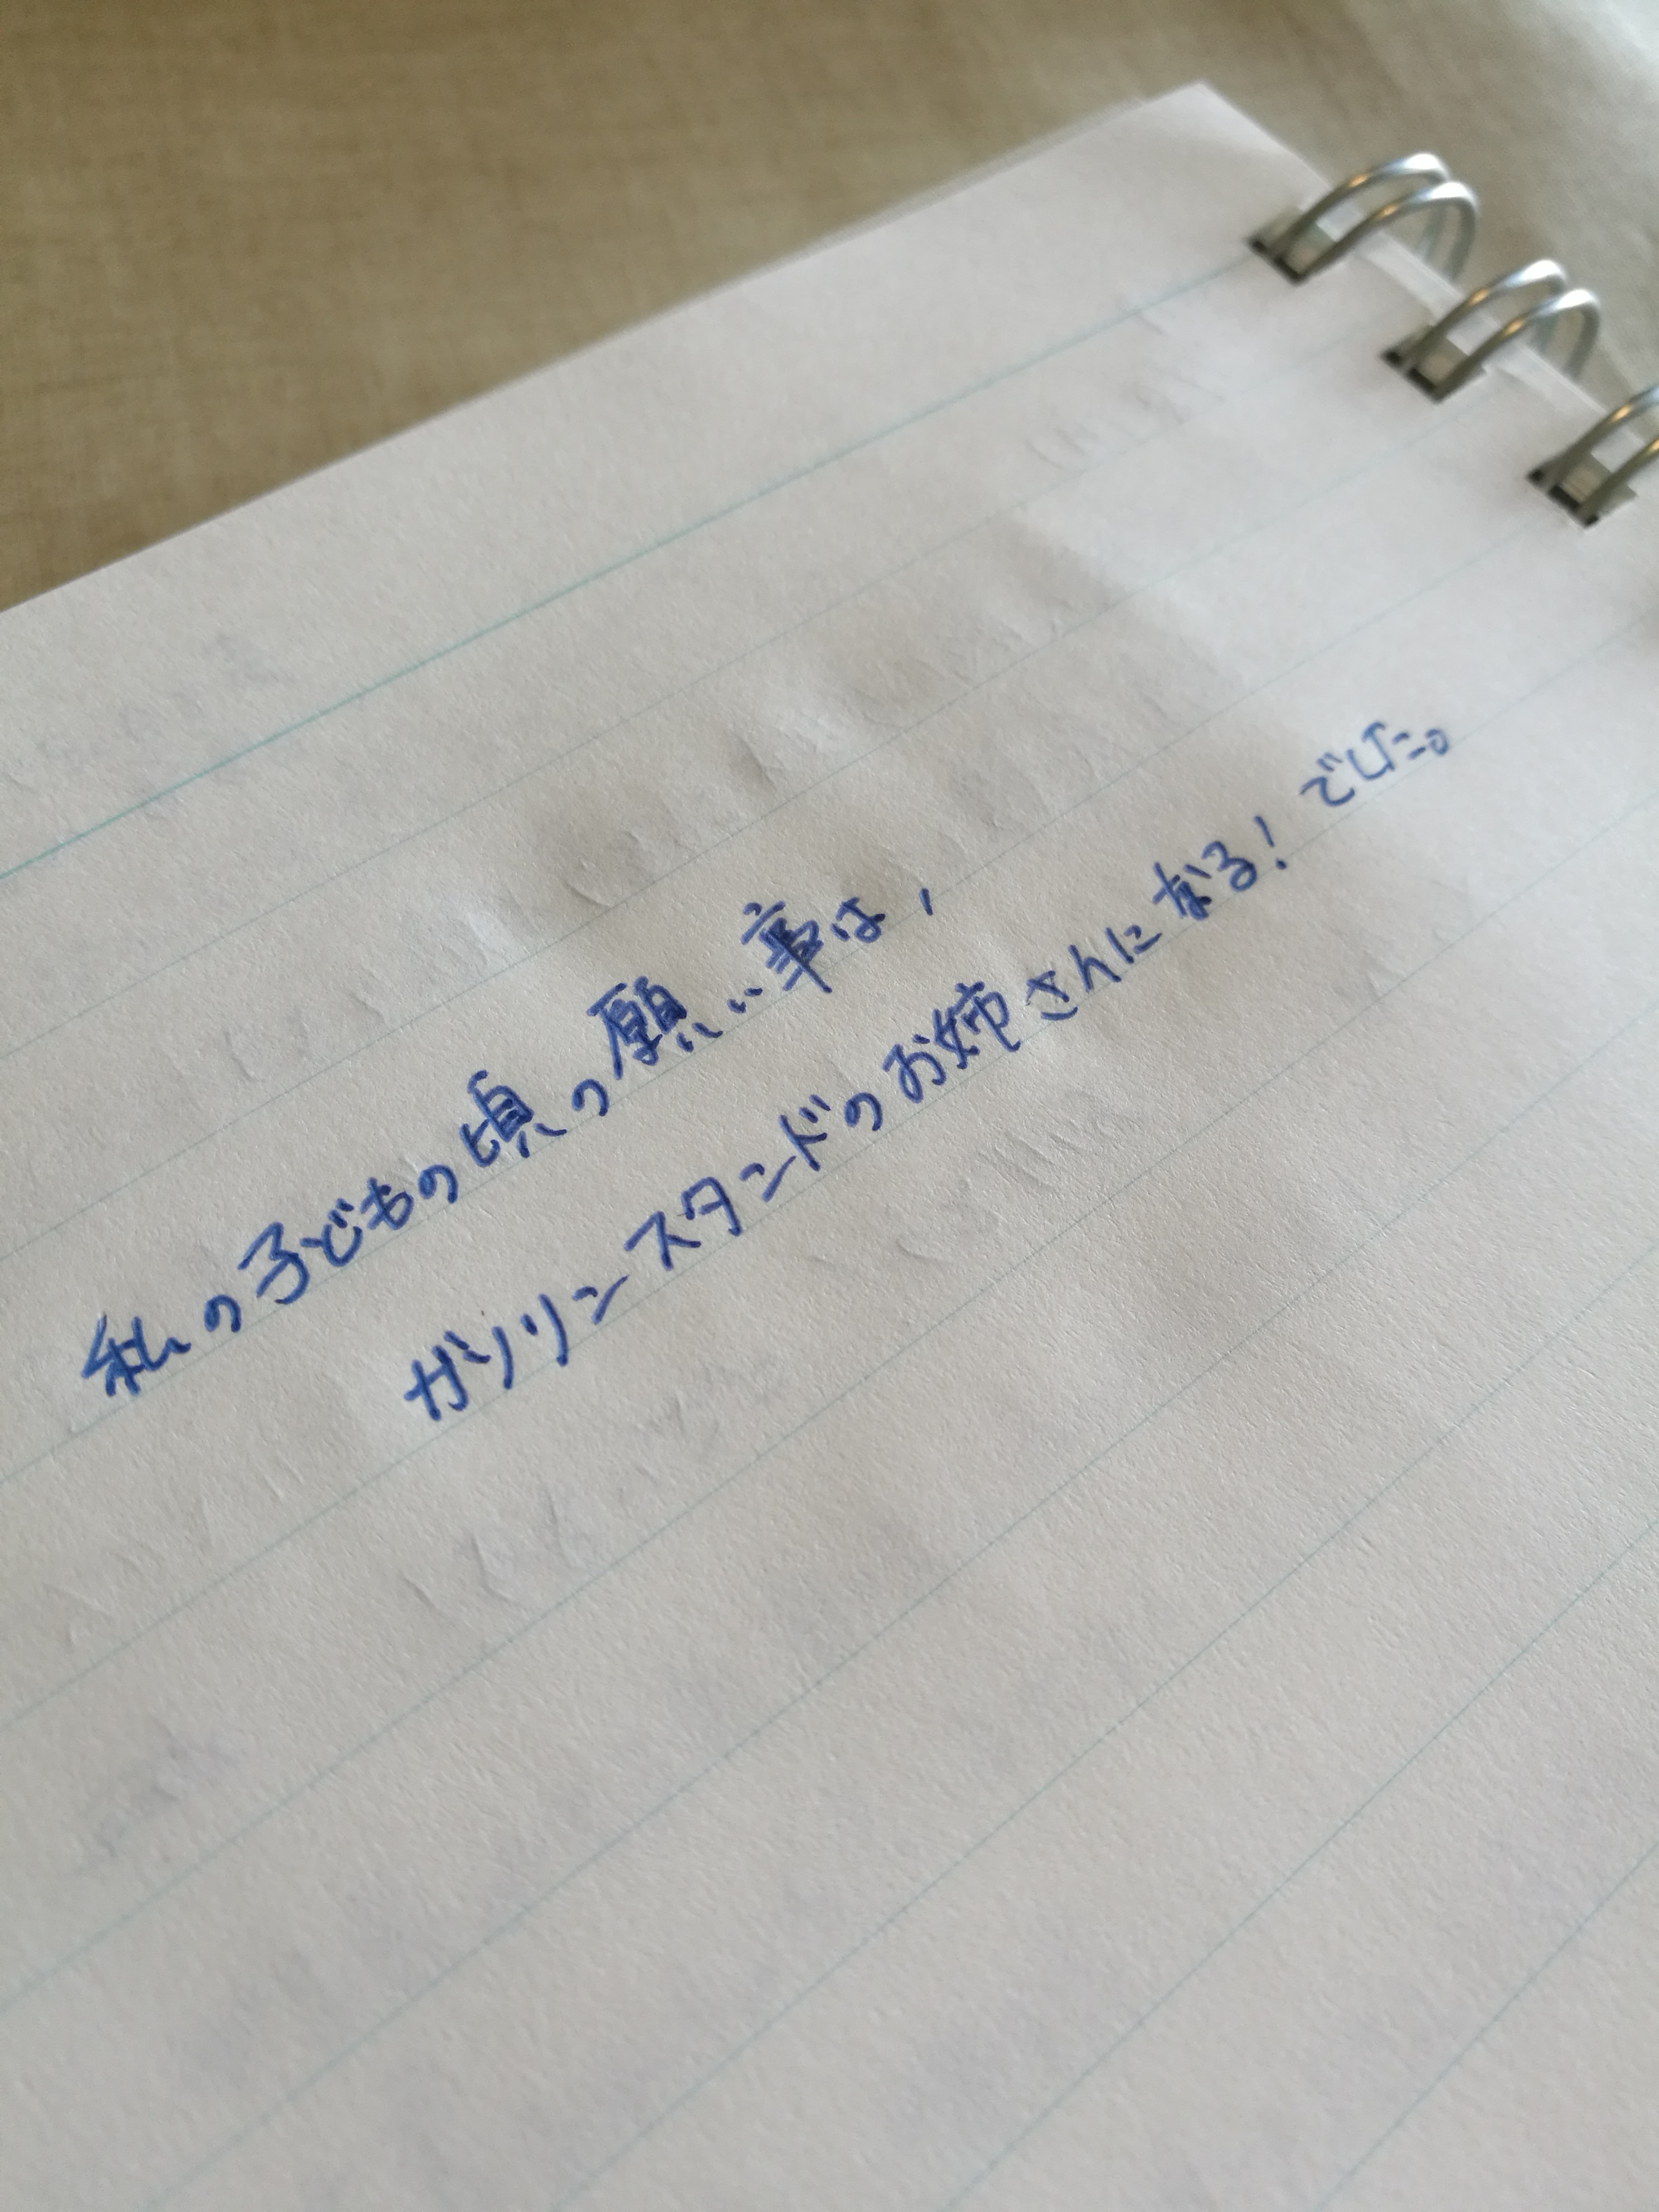 私の子どもの頃の願い事は、
ガソリンスタンドのお姉さんになる！でした。